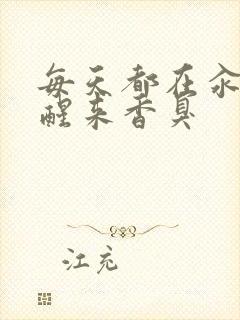 每天都在汆
醒来香臭
江充